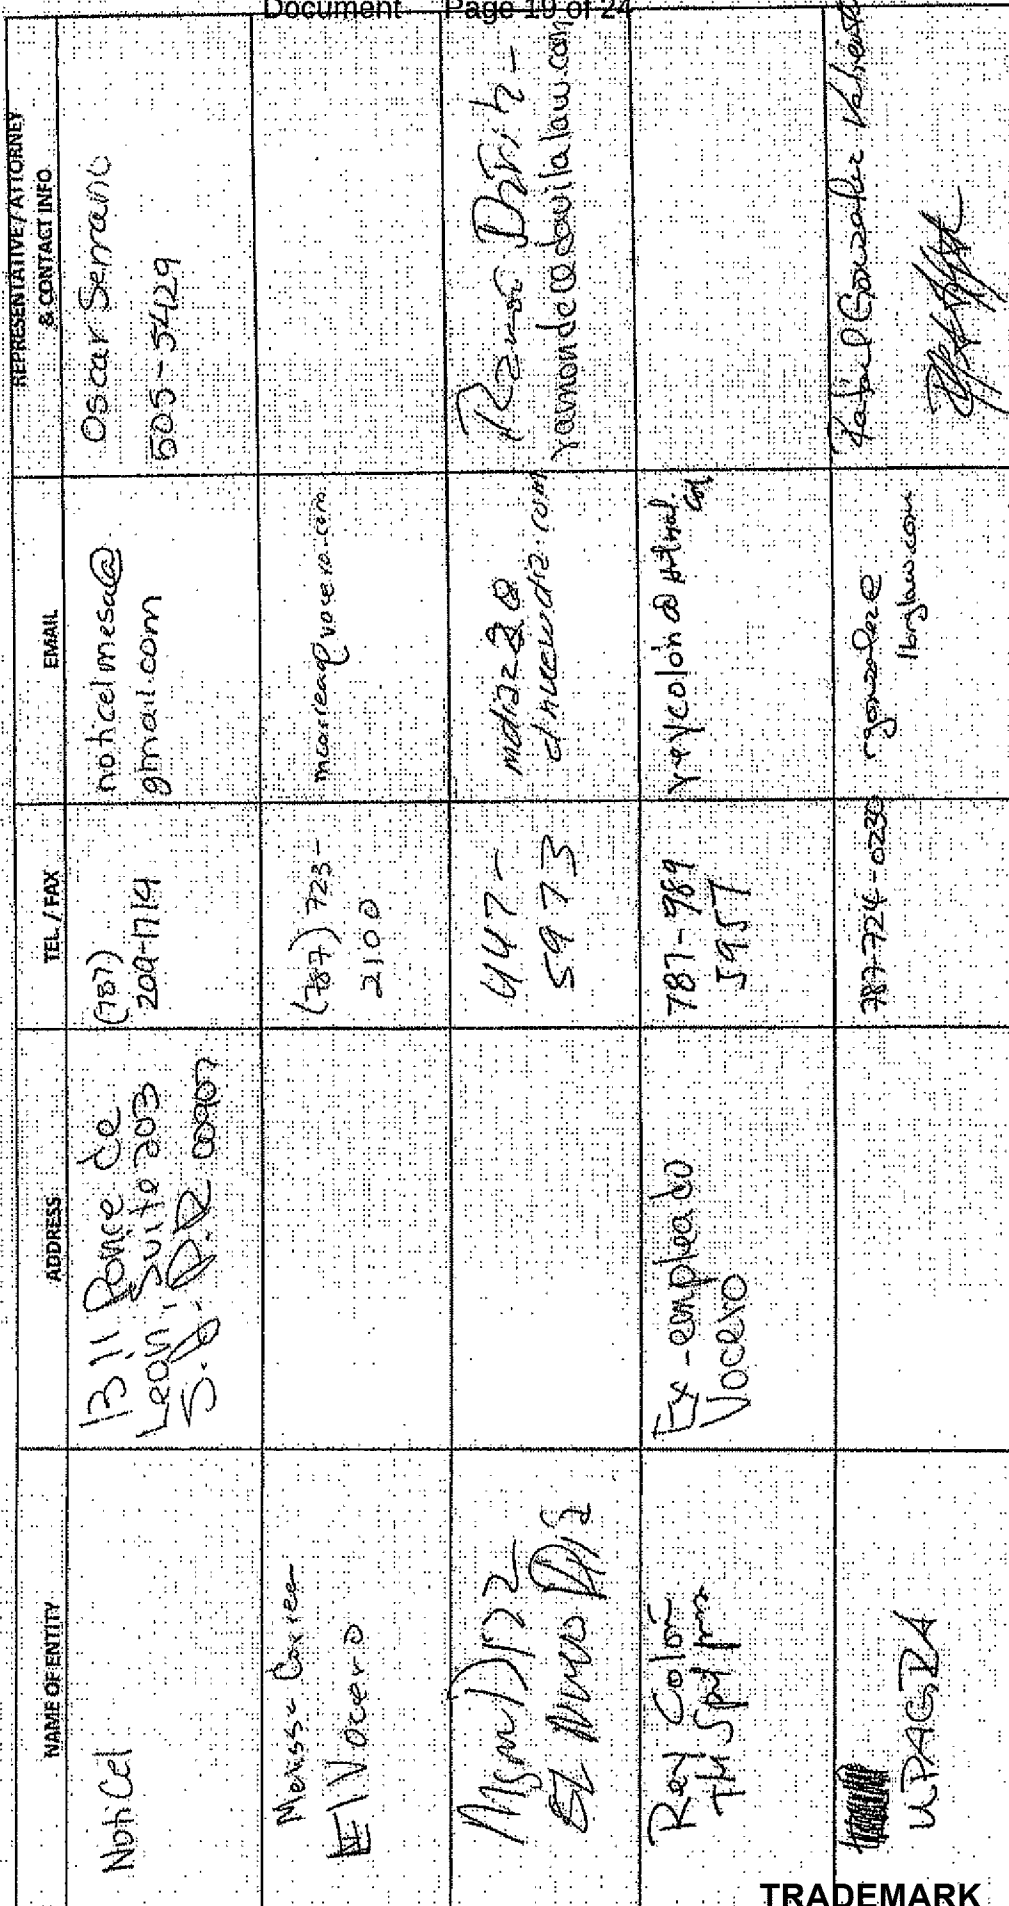 Document Page 19 of 24
NAME OF ENTITY
ADDRESS
TEL. / FAX
EMAIL
REPRESENTATIVE / ATTORNEY
& CONTACT INFO
NotiCel
1311 Ponce de
Leon, Suite 203
S.J. P.R. 00907
(787)
209-1714
noticelmesa@
gmail.com
Oscar Serrano
505-5429
Correa
El Vocero
(787) 723-
2100
vocero.com
Diaz
El Nuevo Dia
447-
5973
mdiaz@
elnuevodia.com
Ramon
ramonde@davilalaw.com
Rey Colon
Ex-empleado
Vocero
787-989
5957
reycolon@hotmail.
com
UPAGRA
787-724-0230
rgonzalez@
lbrglaw.com
Rafael Gonzalez Valiente
TRADEMARK